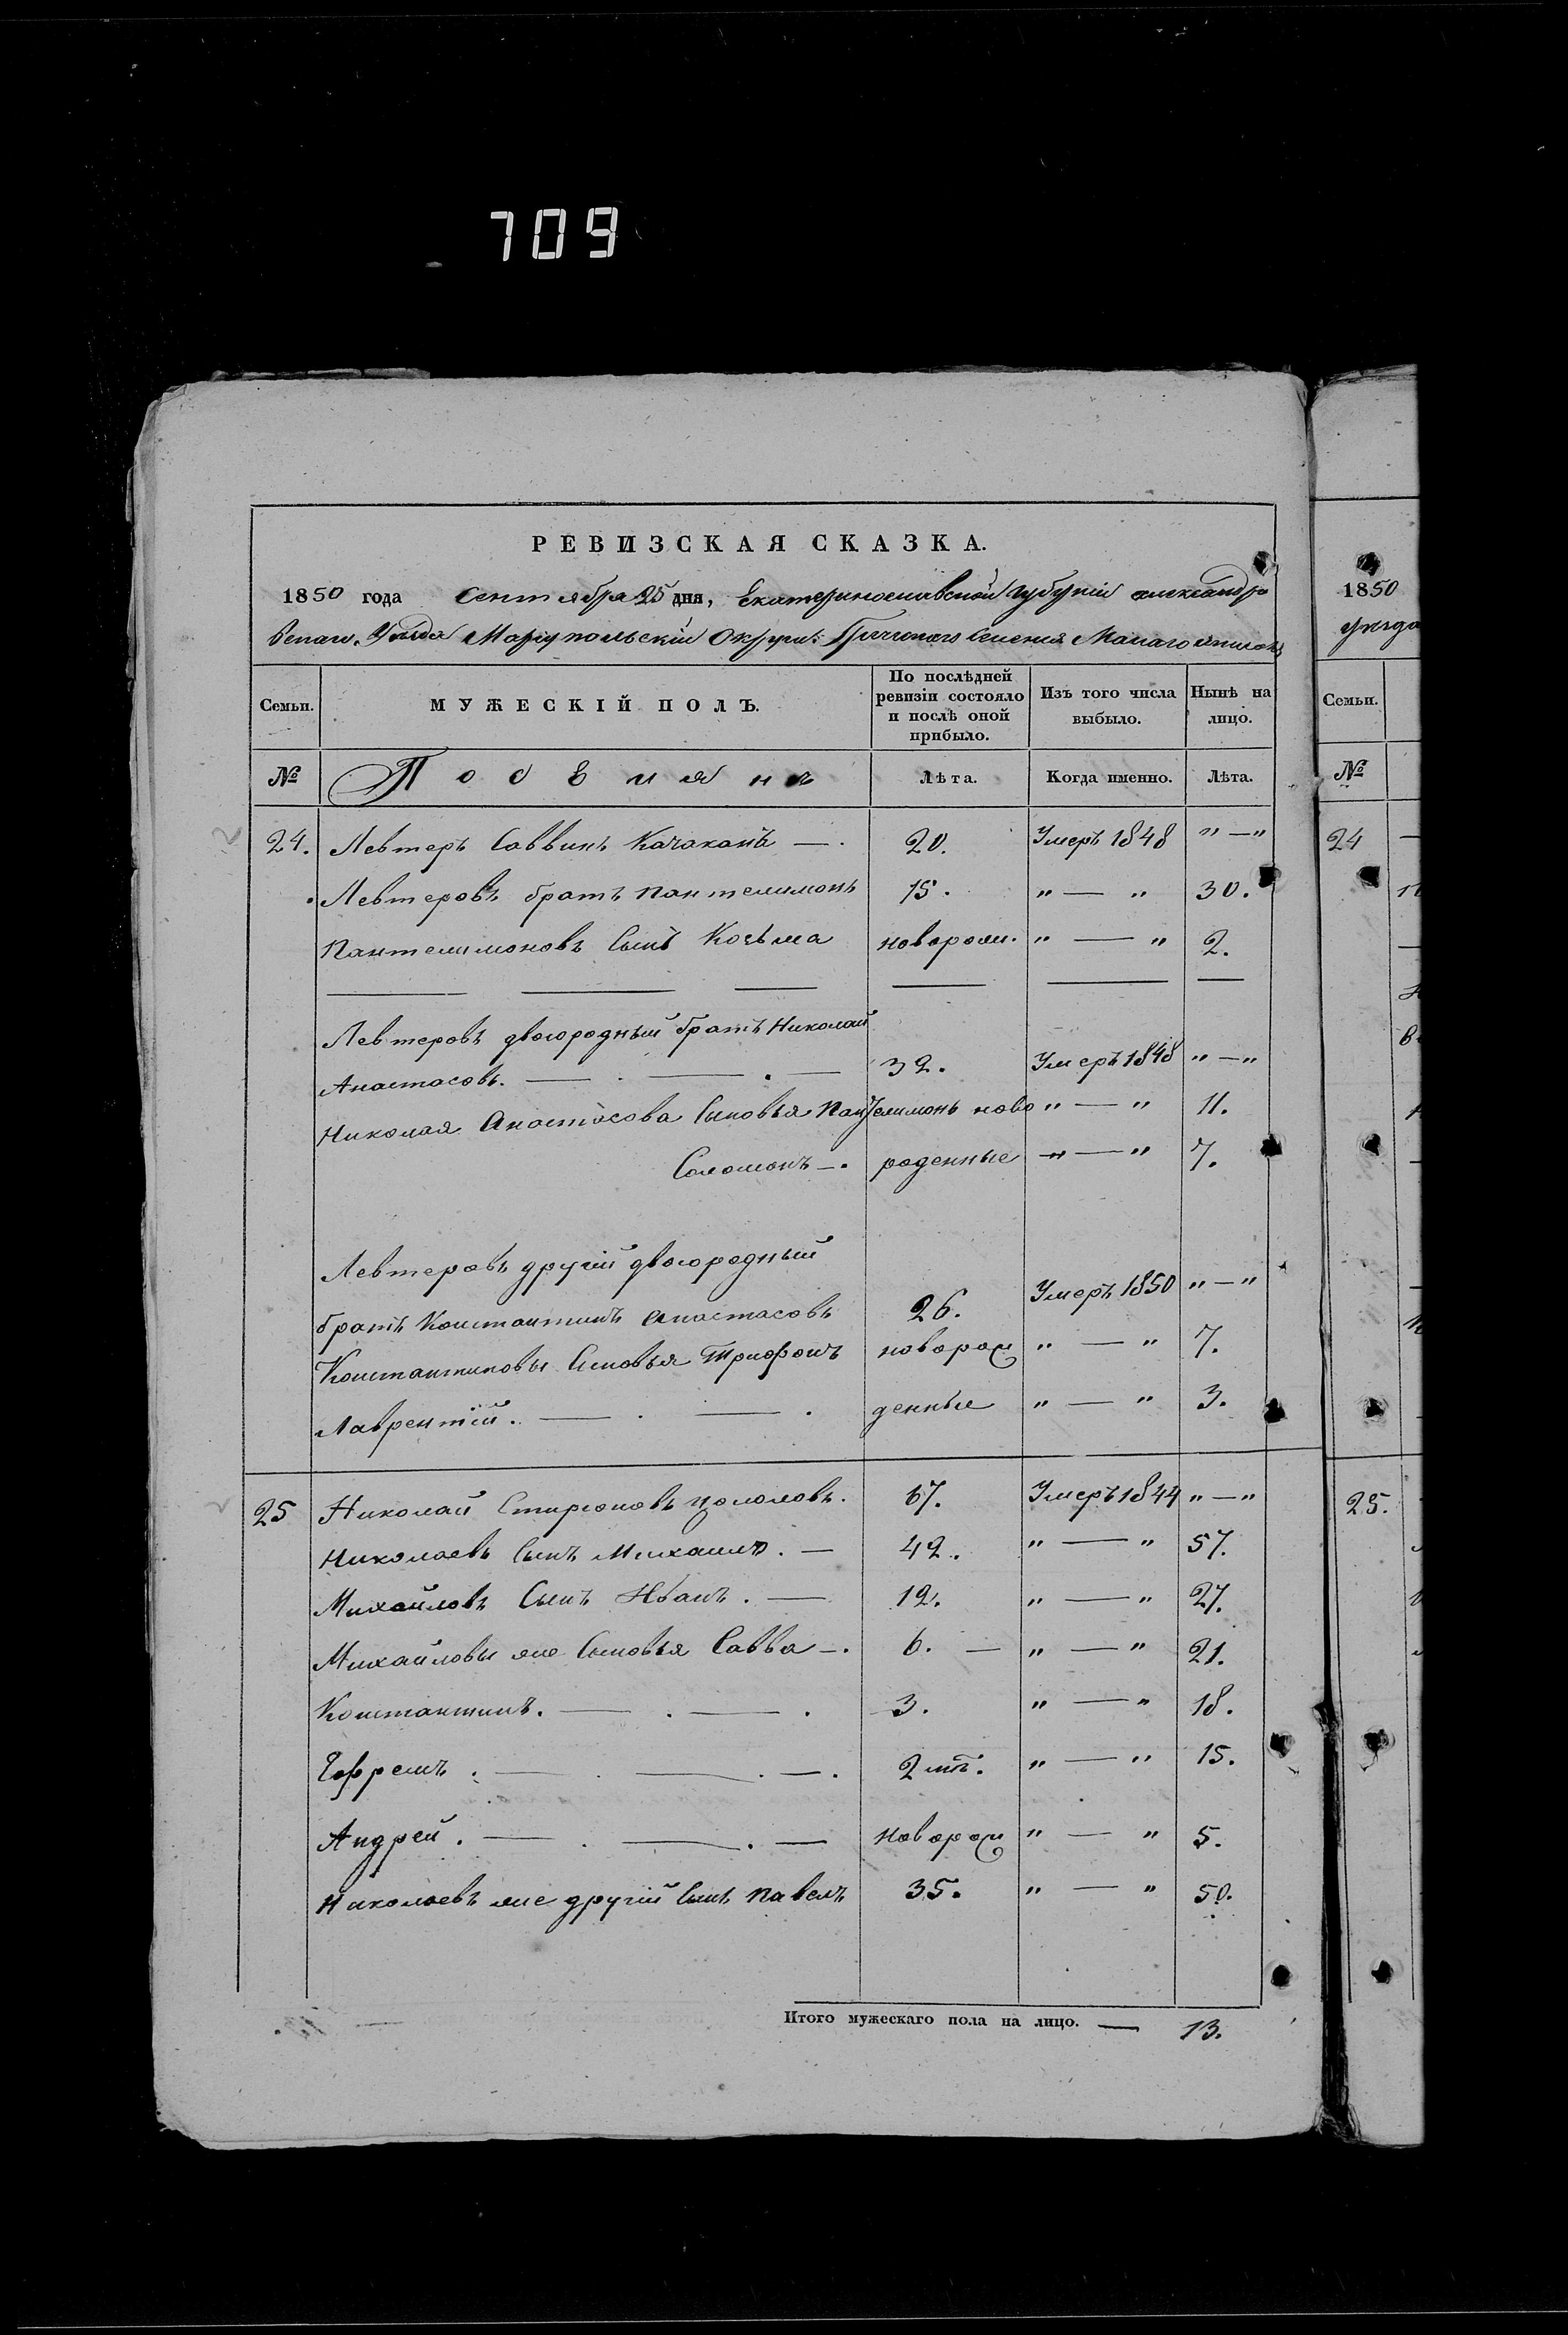 709
РЕВИЗСКАЯ СКАЗКА.
1850 года Сентября 25 дня, Екатеринославской Губерніи Александро
вскаго Уѣзда Маріупольскій Округи: Греческаго Селенія Малаго
Семьи. МУЖЕСКІЙ ПОЛЪ. По послѣдней ревизіи состояло и послѣ оной прибыло. Изъ того числа выбыло. Нынѣ на лицо.
№ Лѣта. Когда именно. Лѣта.
24. Левтеръ Саввинъ Качаканъ —. 20. Умеръ 1848 " — "
Левтеровъ братъ Пантелимонъ 15. " — " 30.
Пантелимоновъ Сынъ Козьма новорож. " — " 2.
Левтеровъ двоюродный братъ Николай
Анастасовъ. — . — . — 32. Умеръ 1848 " — "
Николая Анастасова Сыновья Пантелимонъ ново " — " 11.
Соломонъ —. роденные " — " 7.
Левтеровъ другій двоюродный
братъ Константинъ Анастасовъ 26. Умеръ 1850 " — "
Константиновы Сыновья Трифонъ новорож " — " 7.
Лаврентій. — . — . денные " — " 3.
25 Николай Спиридоновъ 67. Умеръ 1844 " — "
Николаевъ Сынъ Михаилъ. — 42. " — " 57.
Михайловъ Сынъ Иванъ. — 12. " — " 27.
Михайловы же Сыновья Савва —. 6. — " — " 21.
Константинъ. — . — . 3. " — " 18.
Ефремъ . — . — . —. 2 мѣ. " — " 15.
Андрей . — . — . — новорож " — " 5.
Николаевъ же другій Сынъ Павелъ 35. " — " 50.
Итого мужескаго пола на лицо. — 13.
1850
уѣзда
Семьи.
№
24
25.